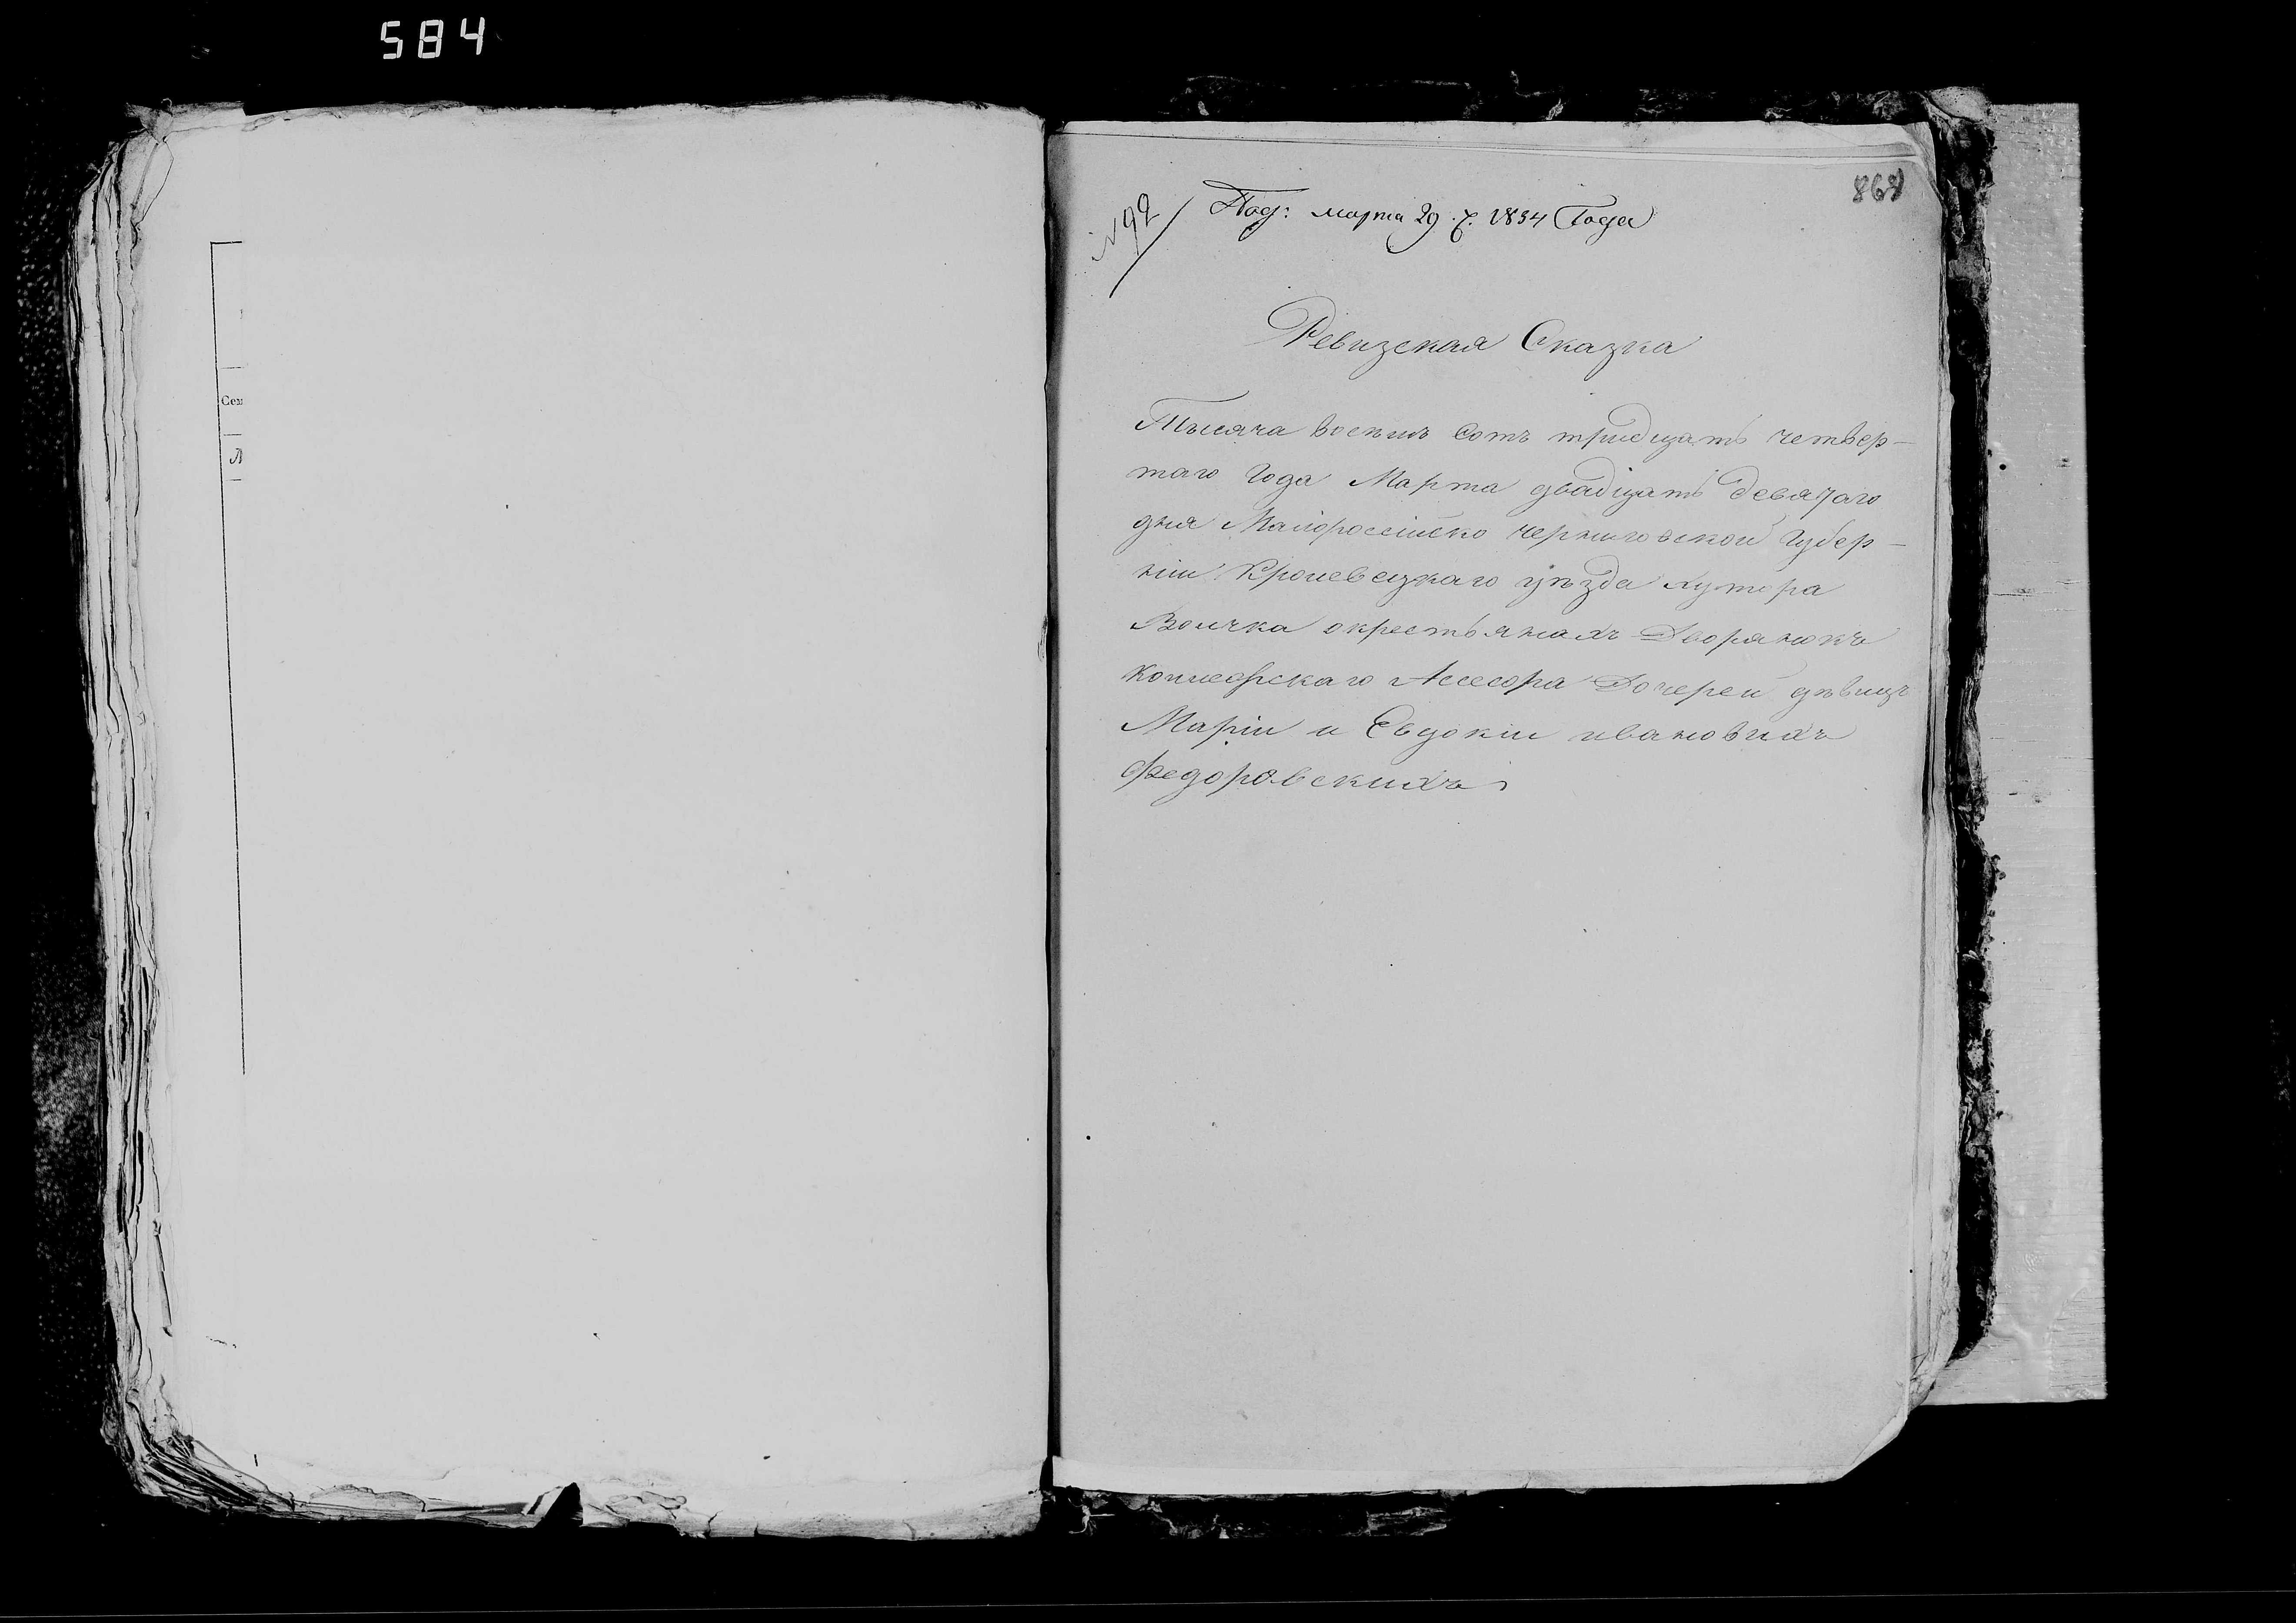 584
868
№ 92
Под: марта 29. ч. 1834 Года
Ревизская Сказка
Тысяча восемь Сотъ тридцать четвер-
таго Года Марта двадцать девятаго
дня Малороссійско черниговской Губер-
ніи Кролевецкаго уѣзда хутора
Волчка окрестьянахъ Дворянокъ
Коллежскаго Асесора Дочерей дѣвицъ
Маріи и Евдокіи ивановыхъ
Федоровскихъ
Сем